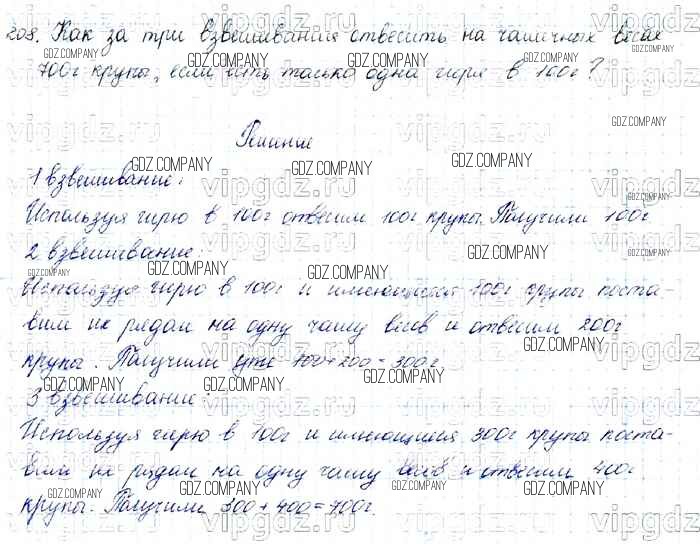 208. Как за три взвешивания отвесить на чашечных весах
700г крупы, если есть только одна гиря в 100г?
Решение
1 взвешивание:
Используя гирю в 100г отвесим 100г крупы. Получили 100г
2 взвешивание.
Используя гирю в 100г и имеющиеся 100г крупы поста-
вим их рядом на одну чашу весов и отвесим 200г
крупы. Получили уже 100+200=300г
3 взвешивание:
Используя гирю в 100г и имеющиеся 300г крупы поста-
вим их рядом на одну чашу весов и отвесим 400г
крупы. Получили 300+400=700г
GDZ.COMPANY
vipgdz.ru